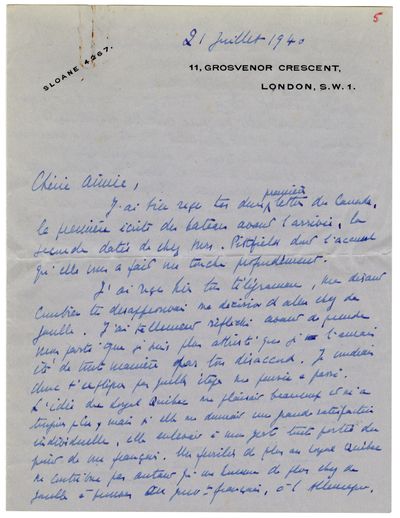 5
21 Juillet 1940
SLOANE 4267.
11, GROSVENOR CRESCENT,
LONDON, S.W.1.
Chérie Aimée,
J'ai bien reçu tes deux première lettres du Canada,
la première écrite du bateau avant l'arrivée, la
seconde datée de chez Mrs. dont l'accueil
qu'elle vous a fait me touche profondément.
J'ai reçu hier ton télégramme, me disant
combien tu désapprouvais ma décision d'aller chez de
Gaulle. J'ai tellement réfléchi avant de prendre
mon parti que je suis plus attristé que je l'aurais
été de toute manière par ton désaccord. Je voudrais
donc t'expliquer par quelles étapes ma pensée a passé.
L'idée du Royal Québec me plaisait beaucoup et m'a
toujours plu, mais si elle me donnait une grande satisfaction
individuelle, elle enlevait à mon geste toute portée du
point de vue français. Un fusilier de plus au Royal Québec
ne contribue pas autant qu'un homme de plus chez de
Gaulle à français, à l'Allemagne.